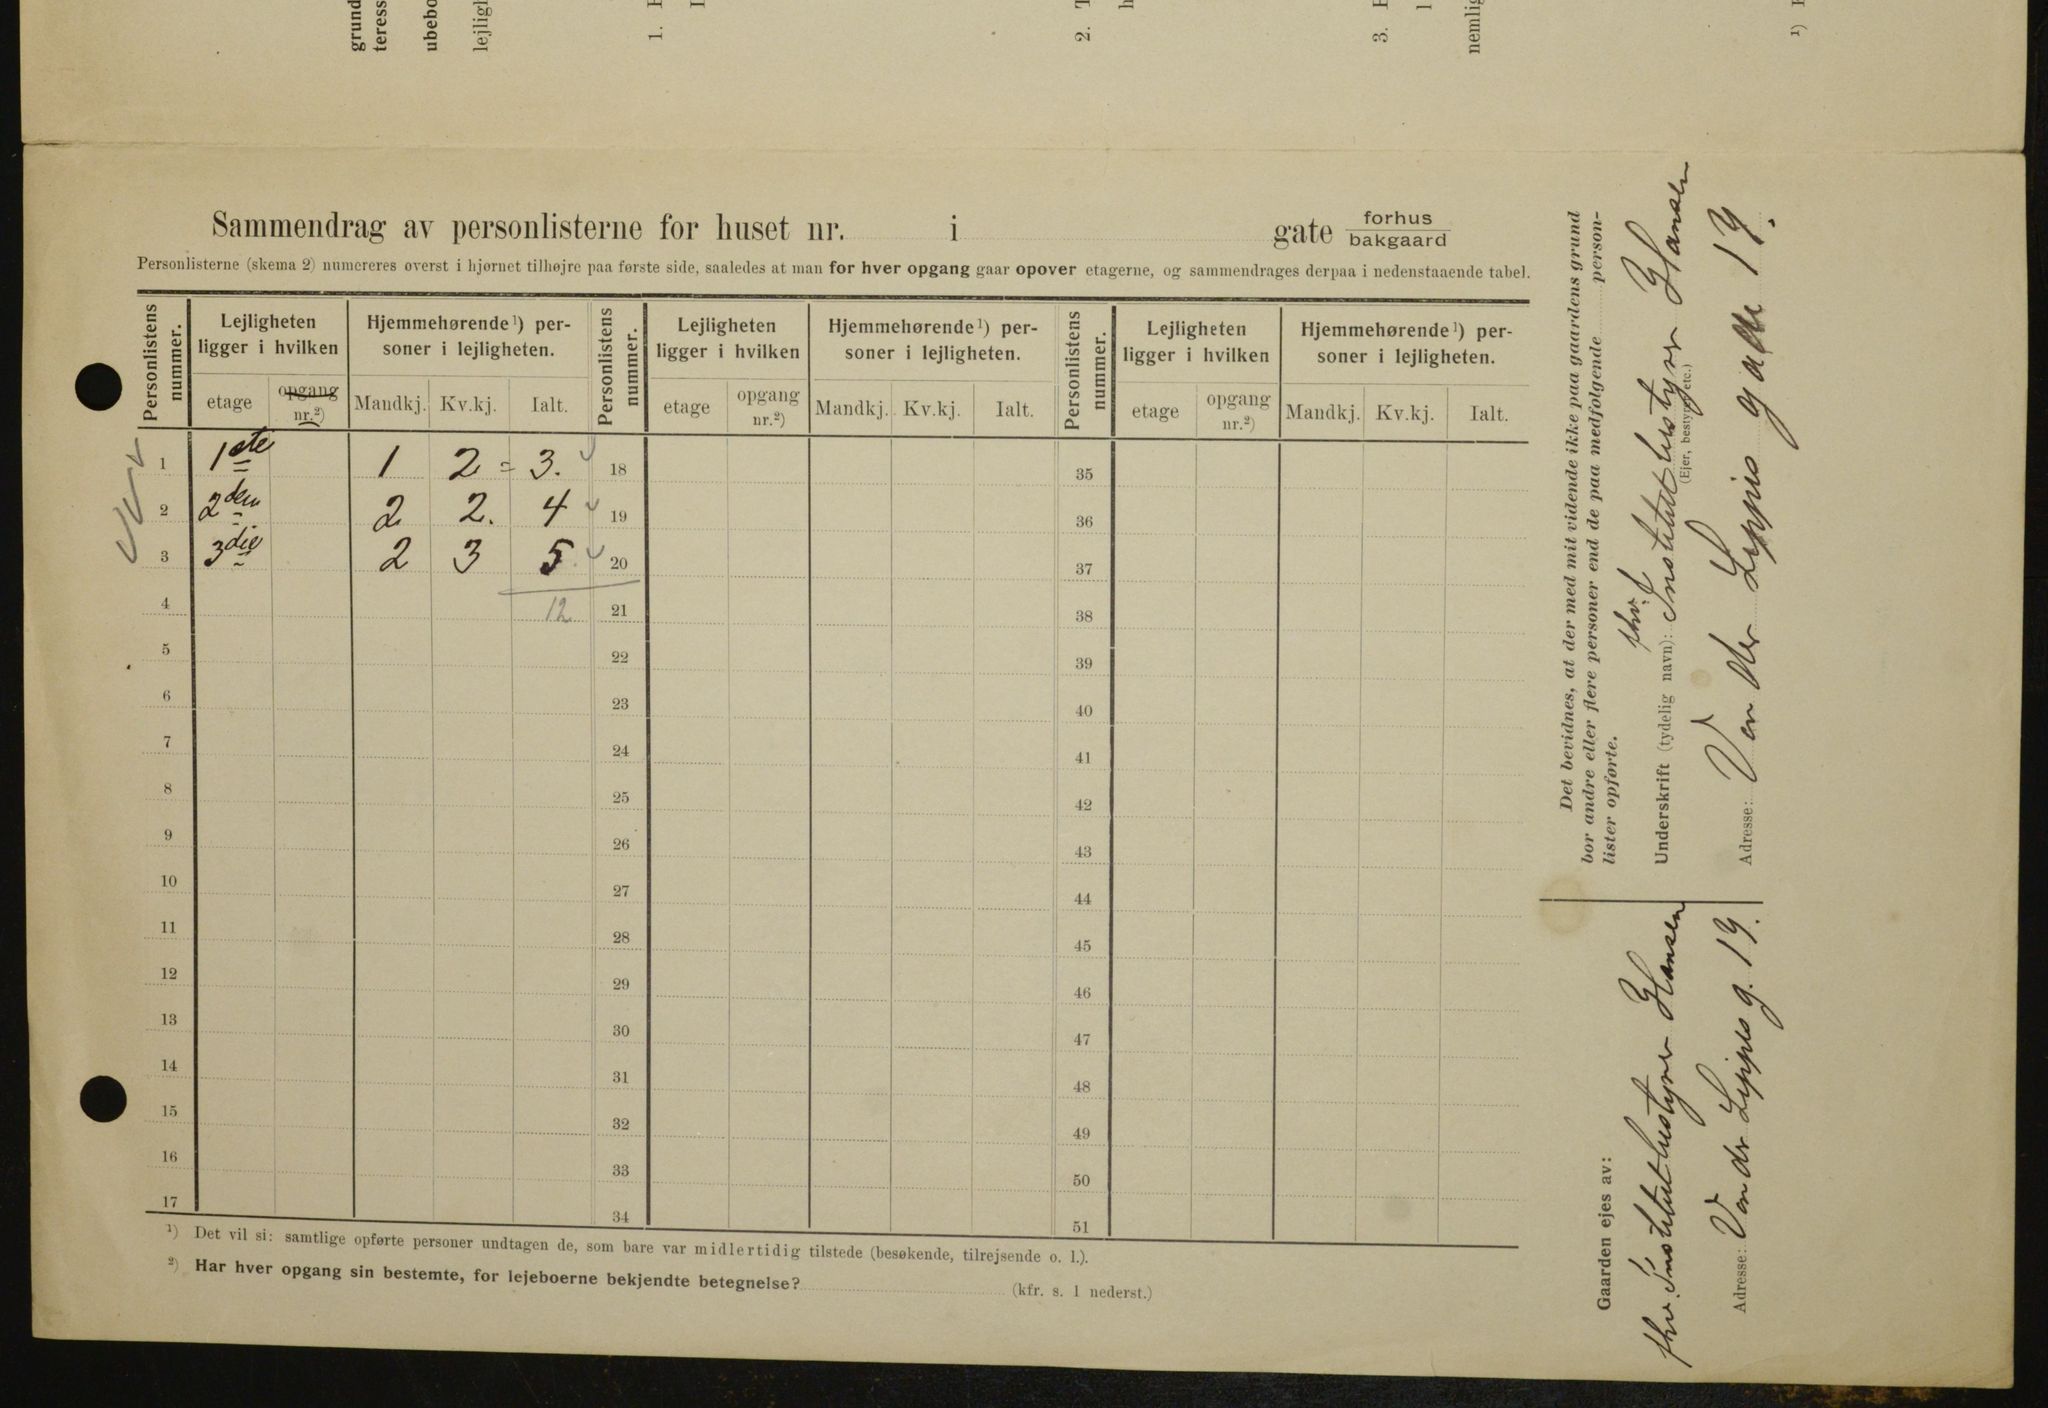 grund
teress
ubebo
lejligh
1.
2. T
h
3. E
1
nemlig
¹)
Sammendrag av personlisterne for huset nr. i gate forhus
bakgaard
Personlisterne (skema 2) numereres øverst i hjørnet tilhøjre paa første side, saaledes at man for hver opgang gaar opover etagerne, og sammendrages derpaa i nedenstaaende tabel.
Personlistens nummer. Lejligheten ligger i hvilken Hjemmehørende ¹) personer i lejligheten. Personlistens nummer. Lejligheten ligger i hvilken Hjemmehørende ¹) personer i lejligheten. Personlistens nummer. Lejligheten ligger i hvilken Hjemmehørende ¹) personer i lejligheten.
etage opgang nr.²) Mandkj. Kv.kj. Ialt. etage opgang nr.²) Mandkj. Kv.kj. Ialt. etage opgang nr.²) Mandkj. Kv.kj. Ialt.
1 1ste 1 2 = 3. 18 35
2 2den 2 2. 4 19 36
3 3die 2 3 5. 20 37
4 12 21 38
5 22 39
6 23 40
7 24 41
8 25 42
9 26 43
10 27 44
11 28 45
12 29 46
13 30 47
14 31 48
15 32 49
16 33 50
17 34 51
¹) Det vil si: samtlige opførte personer undtagen de, som bare var midlertidig tilstede (besøkende, tilrejsende o. l.).
²) Har hver opgang sin bestemte, for lejeboerne bekjendte betegnelse? (kfr. s. 1 nederst.)
Det bevidnes, at der med mit vidende ikke paa gaardens grund
bor andre eller flere personer end de paa medfølgende person-
lister opførte.
fhv.
Underskrift (tydelig navn): Institutbestyrer Hansen
(Ejer, bestyrer etc.)
Adresse: Von der Lippes gade 19.
Gaarden ejes av:
fhv. Institutbestyrer Hansen
Adresse: Von dr Lippes g. 19.